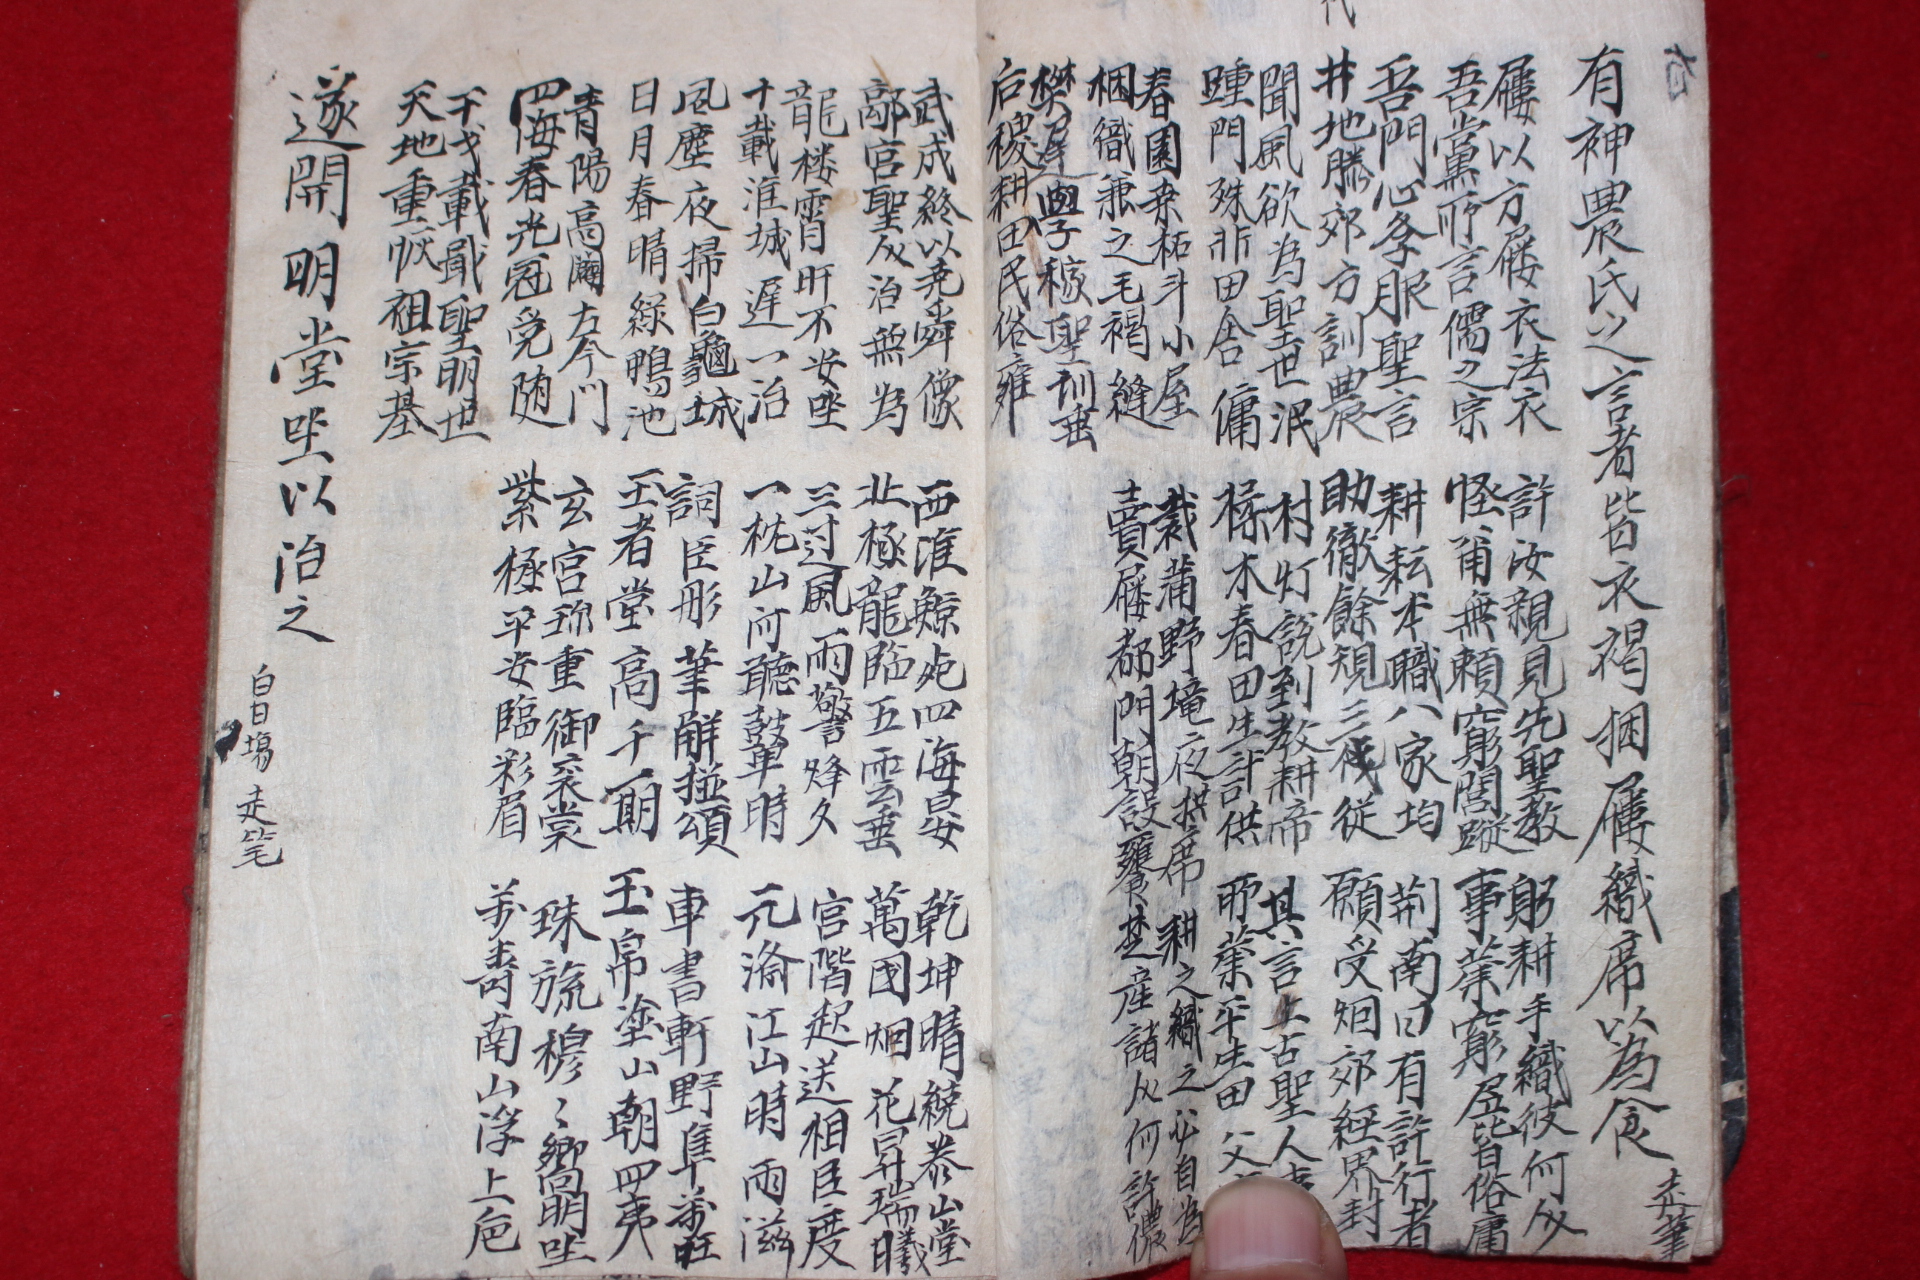 有神農氏之言者皆衣褐捆屨織席以為食
走筆
屨以方屨衣法衣
吾黨所言儒之宗
許汝親見先聖教
怪爾無賴窮閭蹤
躬耕手織彼何人
事業窮居皆俗庸
吾門心學服聖言
井地滕郊方訓農
耕耘本職八家均
助徹餘規三代從
荊南曰有許行者
願受烟郊經界封
聞風欲為聖世氓
踵門殊非田舍傭
村灯說到教耕帝
楺木春田生計供
其言上古聖人事
所業平生田父
春園桑柘斗小屋
梱織兼之毛褐縫
裁蒲野境夜拱席
賣屨都門朝設饔
耕之織之必自為
楚產諸人何許儂
樊遲學稼聖訓垂
后稷耕田民俗雍
武成終以堯舜像
鄗宮聖人治無為
西淮鯨死四海晏
北極龍臨五雲垂
乾坤晴繞泰山堂
萬国烟花昇瑞曦
龍楼宵旰不安坐
十載淮城遲一治
三过風雨警烽夕
一枕山河聽鼙時
宮階起送相臣度
元江山時雨滋
風塵夜掃白龜城
日月春晴綠鴨池
詞臣彤筆解搃頌
王者堂高千一期
車書軒野隼旺
玉帛塗山朝四夷
青陽高闢左个門
四海春光冠冕随
玄宮珎重御衮裳
紫極平安臨彩眉
珠旒穆々嚮明坐
萬壽南山浮上巵
干戈載戢聖明世
天地重恢祖宗基
遂開明堂坐以治之
白日場 走笔